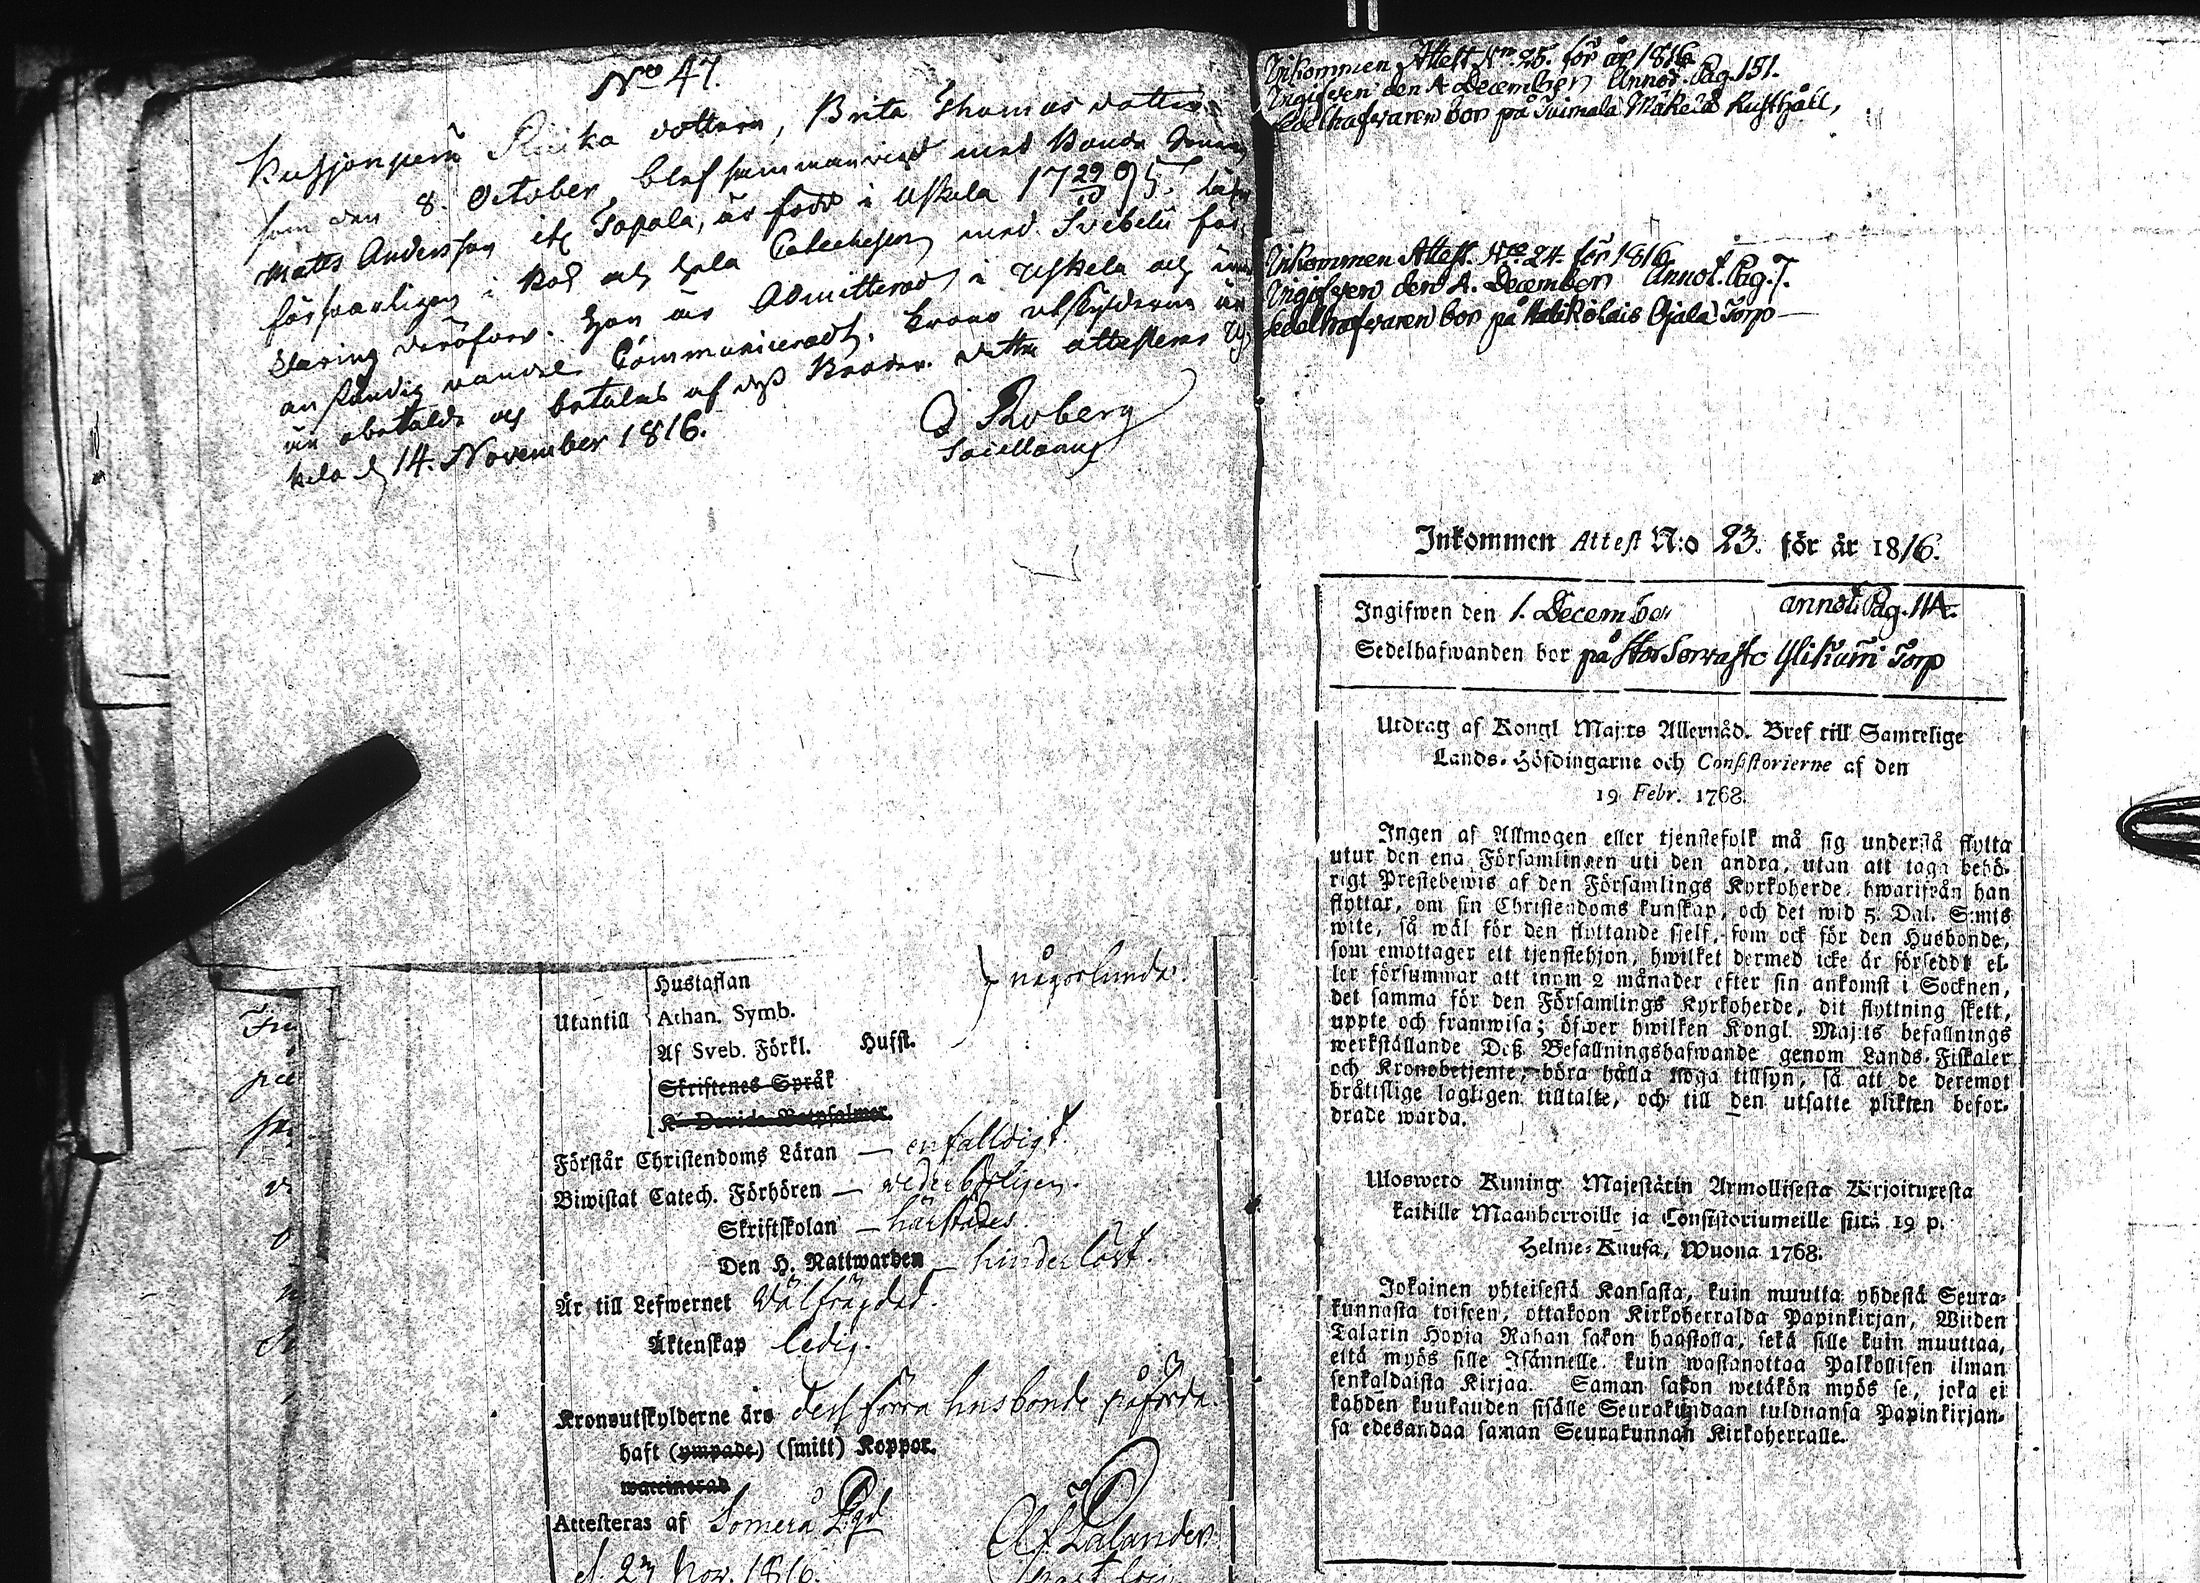 No 47.
dottern, Brita Thomas dotter
som den 8. October blef sammanvigd med Bonde Sonen
Matts Andersson ifr. Tapala, är född i Uskela 17 29/10 95. Läser
försvarligen i Bok och hela Catechesen med Svebelii för
klaring deröfver. Hon är Admitterad i Uskela och
anständig vandel Communiceradt. Krono utskylderna
är obetalde och betalas af dess Broder. Detta attesteras Us
kela d 14. November 1816.
Roberg
Sacellanus
Hustaflan
Utantill Athan. Symb.
Af Sveb. Förkl. Hufst.
någorlunda.
Skriftenes Språk
K. Davids Botpsalmer.
Förstår Christendoms Läran — enfalldigt.
Biwistat Catech. Förhören — vederbörligen.
Skriftskolan — härstädes.
Den H. Nattwarden — hinderlöst.
Är till Lefwernet Välfrägdad.
Äktenskap ledig.
Kronoutskylderne äro dess förra husbonde påförda.
haft (ympade) (smitt) Koppor.
waccinerad
Attesteras af Somero Pgd
d. 23 Nov. 1816.
Palander
Inkommen Attest No 25. för år 1816
Ingifven den 4 December Annot. Pag. 151.
Sedelhafvaren bor på Rusthåll,
Inkommen Attest. No 24. för 1816
Ingifven den 4. December Annot. Pag. 7.
Sedelhafvaren bor på Ojala Torp —
Inkommen Attest N:o 23. för år 1816.
Ingifwen den 1. December annot. Pag. 114.
Sedelhafwanden bor på Torp
Utdrag af Kongl Maj:ts Allernåd. Bref till Samtelige
Lands-Höfdingarne och Consistorierne af den
19 Febr. 1768.
Ingen af Allmogen eller tjenstefolk må sig understå flytta
utur den ena Församlingen uti den andra, utan att taga behö-
rigt Prestebewis af den Församlings Kyrkoherde, hwarifrån han
flyttar, om sin Christendoms kunskap, och det wid 5. Dal. S:mts
wite, så wäl för den flyttande sjelf, som ock för den Husbonde,
som emottager ett tjenstehjon, hwilket dermed icke är försedd; el-
ler försummar att inom 2 månader efter sin ankomst i Socknen,
det samma för den Församlings Kyrkoherde, dit flyttning skett,
uppte och framwisa; öfwer hwilken Kongl. Maj:ts befallnings
werkställande Deß Befallningshafwande genom Lands-Fiskaler
och Kronobetjente, böra hålla noga tillsyn, så att de deremot
bråttslige lagligen tilltalte, och till den utsatte plikten befor-
drade warda.
Uloswero Kuning. Majestätin Armollisesta Kirjoituxesta
kaikille Maanherroille ja Consistoriumeille siitä 19 p.
Helme-Kuusa, Wuona 1768.
Jokainen yhteisestä Kansasta, kuin muutta yhdestä Seura-
kunnasta toiseen, ottakoon Kirkoherralda Papinkirjan, Wiiden
Talarin Hopia Rahan sakon haastolla, sekä sille kuin muuttaa,
että myös sille Isännelle, kuin wastanottaa Palkollisen ilman
senkaldaista Kirjaa. Saman sakon wetäkön myös se, joka ei
kahden kuukauden sisälle Seurakundaan tulduansa Papinkirjan-
sa edesandaa saman Seurakunnan Kirkoherralle.